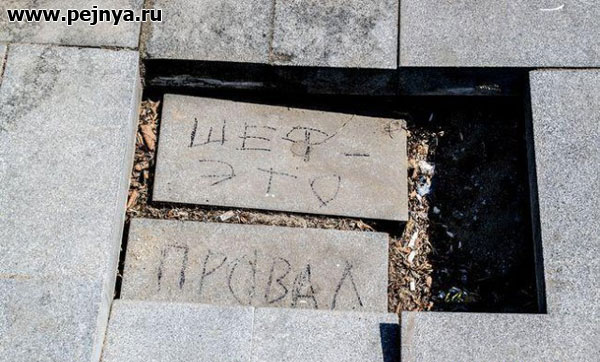 www.pejnya.ru
ШЕФ -
ЭТО
ПРОВАЛ